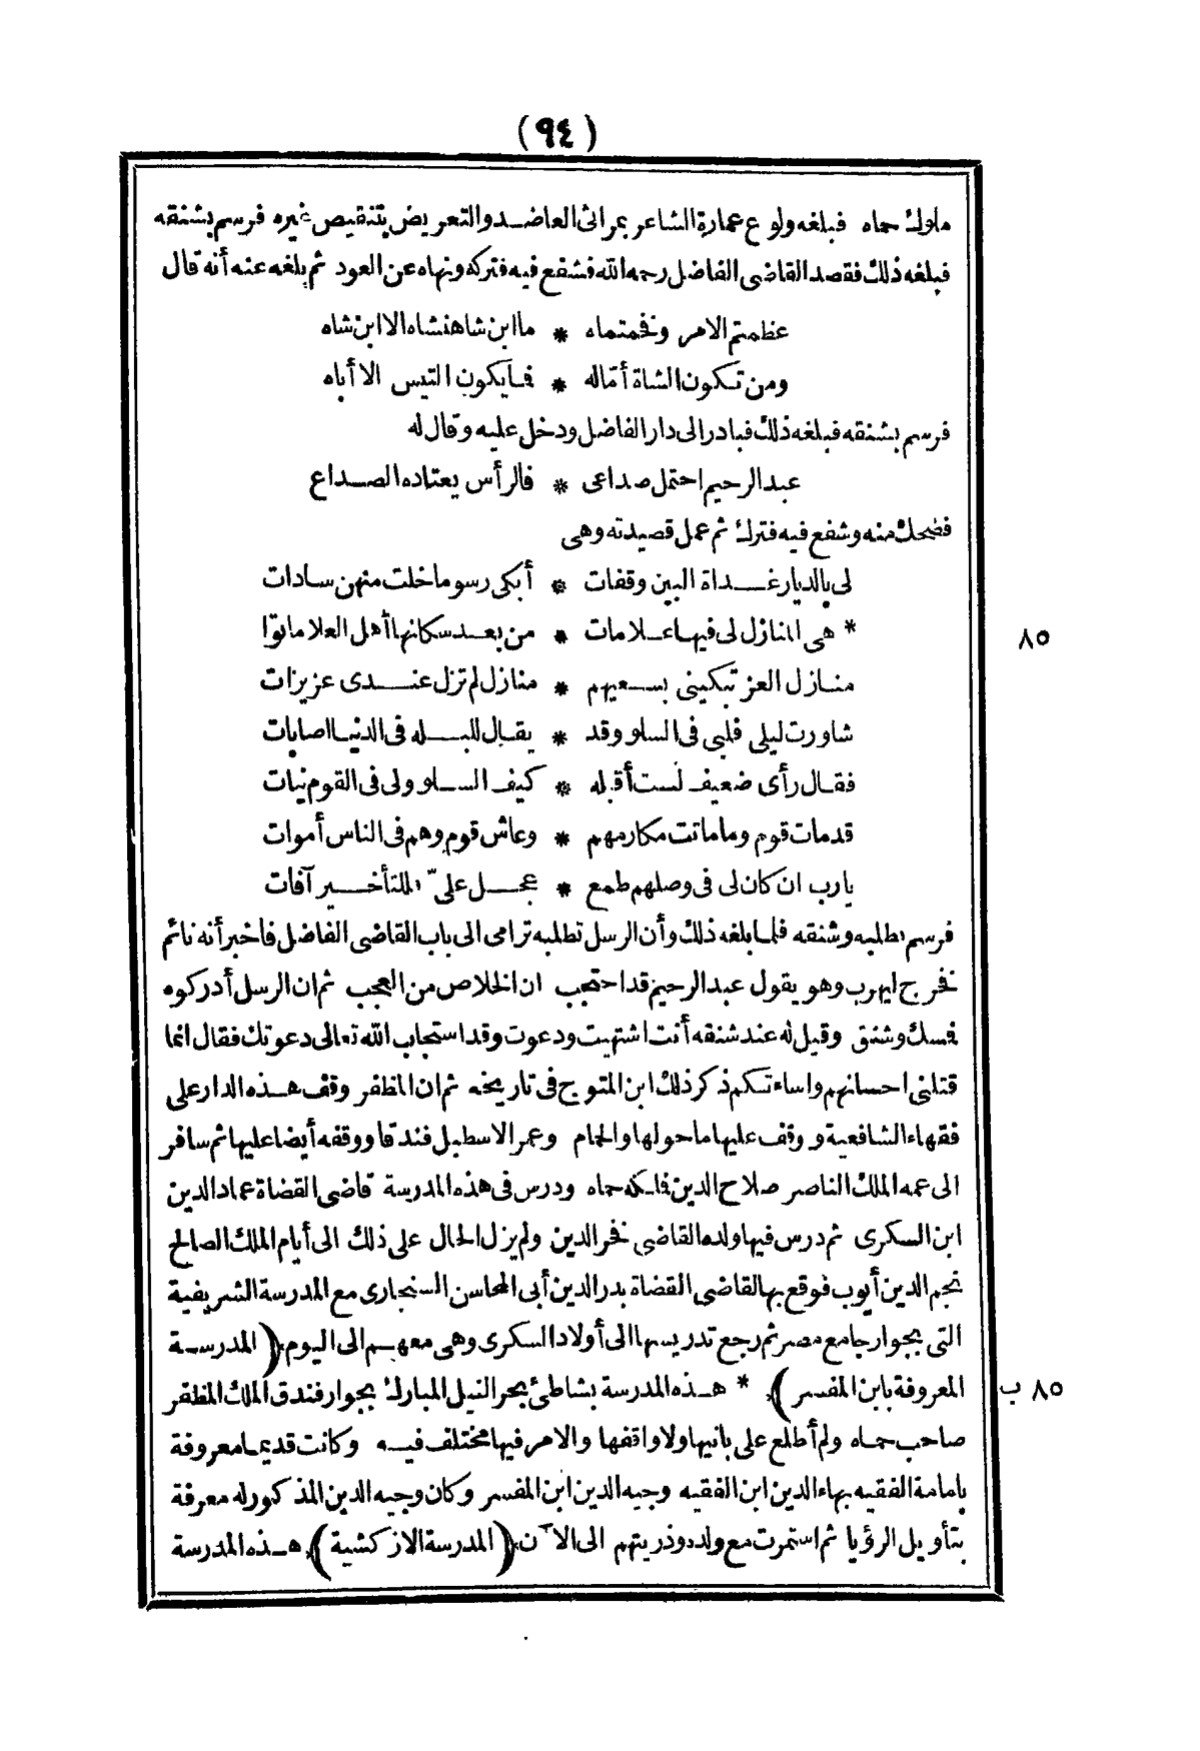 (٩٤)
ملوك حماه فبلغه ولوع عمارة الشاعر بمراثى العاضد والتعريض بتنقيص غيره فرسم بشنقه
فبلغه ذلك فقصد القاضى الفاضل رحمه الله فشفع فيه فتركه ونهاه عن العود ثم بلغه عنه أنه قال
عظمتم الامر وفخمتماه * ما ابن شاهنشاه الا ابن شاه
ومن تكون الشاة أمّاله * فما يكون التيس الا أباه
فرسم بشنقه فبلغه ذلك فبادر الى دار الفاضل ودخل عليه وقال له
عبد الرحيم احتمل صداعى * فالرأس يعتاده الصداع
فضحك منه وشفع فيه فترك ثم عمل قصيدته وهى
لى بالديار غداة البين وقفات * أبكى رسوما خلت منهن سادات
* هى المنازل لى فيها علامات * من بعد سكانها أهل العلا ماتوا
٨٥
منازل العز تبكينى بسعيهم * منازل لم تزل عندى عزيزات
شاورت ليلى قلبى فى السلو وقد * يقال للبله فى الدنيا اصابات
فقال رأى ضعيف لست أقبله * كيف السلو ولى فى القوم نيات
قدمات قوم وما ماتت مكارمهم * وعاش قوم وهم فى الناس أموات
يارب ان كان لى فى وصلهم طمع * عجل علىّ فللتأخير آفات
فرسم بطلبه وشنقه فلما بلغه ذلك وأن الرسل تطلبه ترامى الى باب القاضى الفاضل فأخبر أنه نائم
فخرج ليهرب وهو يقول عبد الرحيم قد احتجب ان الخلاص من العجب ثم ان الرسل أدركوه
فمسك وشنق وقيل له عند شنقه أنت اشتهيت ودعوت وقد استجاب الله تعالى دعوتك فقال انما
قتلنى احسانهم واساءتكم ذكر ذلك ابن المتوج فى تاريخه ثم ان المظفر وقف هذه الدار على
فقهاء الشافعية ووقف عليها ما حولها والحمام وعمر الاسطبل فندقا ووقفه أيضا عليها ثم سافر
الى عمه الملك الناصر صلاح الدين فملكه حماه ودرس فى هذه المدرسة قاضى القضاة عماد الدين
ابن السكرى ثم درس فيها ولده القاضى فخر الدين ولم يزل الحال على ذلك الى أيام الملك الصالح
نجم الدين أيوب فوقع بها لقاضى القضاة بدر الدين أبى المحاسن السنجارى مع المدرسة الشريفية
التى بجوار جامع مصر ثم رجع تدريسها الى أولاد السكرى وهى معهم الى اليوم ﴿المدرسة
المعروفة بابن المفسر﴾ * هذه المدرسة بشاطئ بحر النيل المبارك بجوار فندق الملك المظفر
٨٥ ب
صاحب حماه ولم أطلع على بانيها ولا واقفها والامر فيها مختلف فيه وكانت قديما معروفة
بامامة الفقيه بهاء الدين ابن الفقيه وجيه الدين ابن المفسر وكان وجيه الدين المذكور له معرفة
بتأويل الرؤيا ثم استمرت مع ولده وذريتهم الى الآن ﴿المدرسة الازكشية﴾ هذه المدرسة